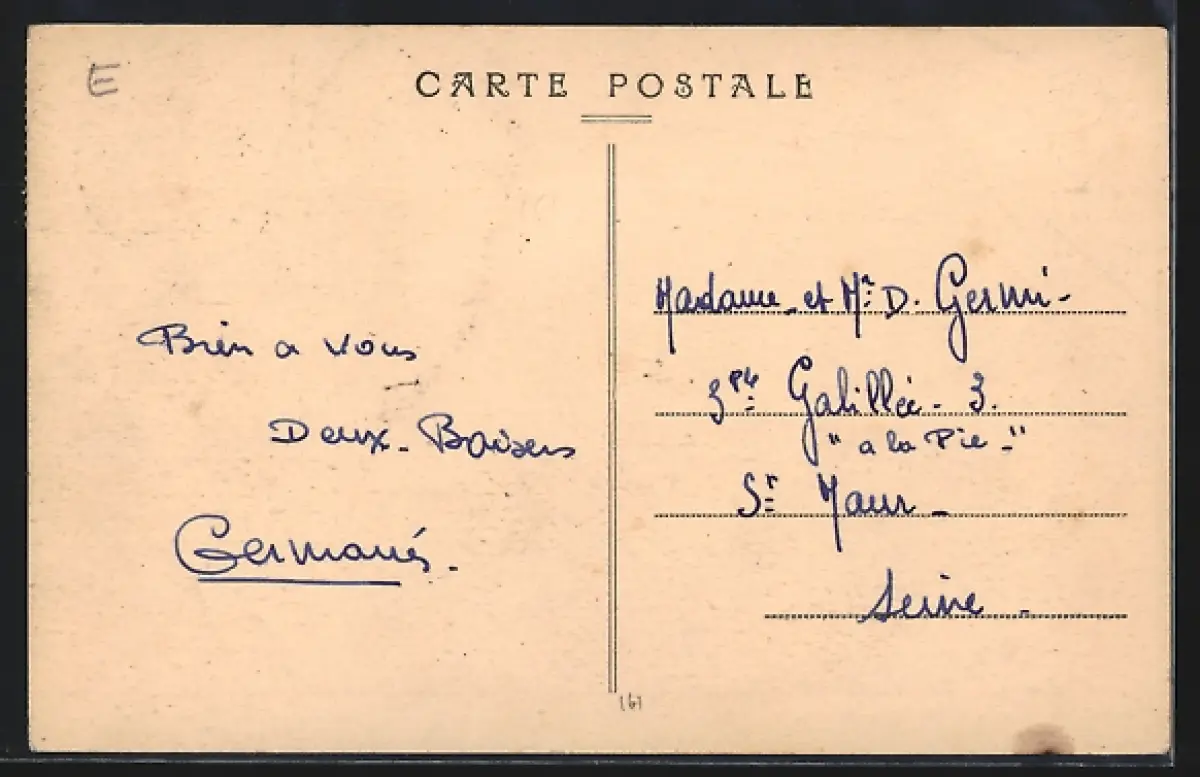 E
CARTE POSTALE
Bien a vous
Deux. Baisers
Madame et Mr D. Germi-
3 Galillée. 3.
"a la Pie"
St Maur
Seine
161